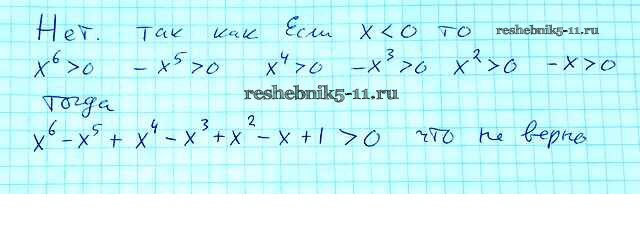 Нет. так как Если x < 0 то reshebnik5-11.ru
x⁶>0 -x⁵>0 x⁴>0 -x³>0 x²>0 -x>0
тогда
reshebnik5-11.ru
x⁶-x⁵+x⁴-x³+x²-x+1>0 что не верно